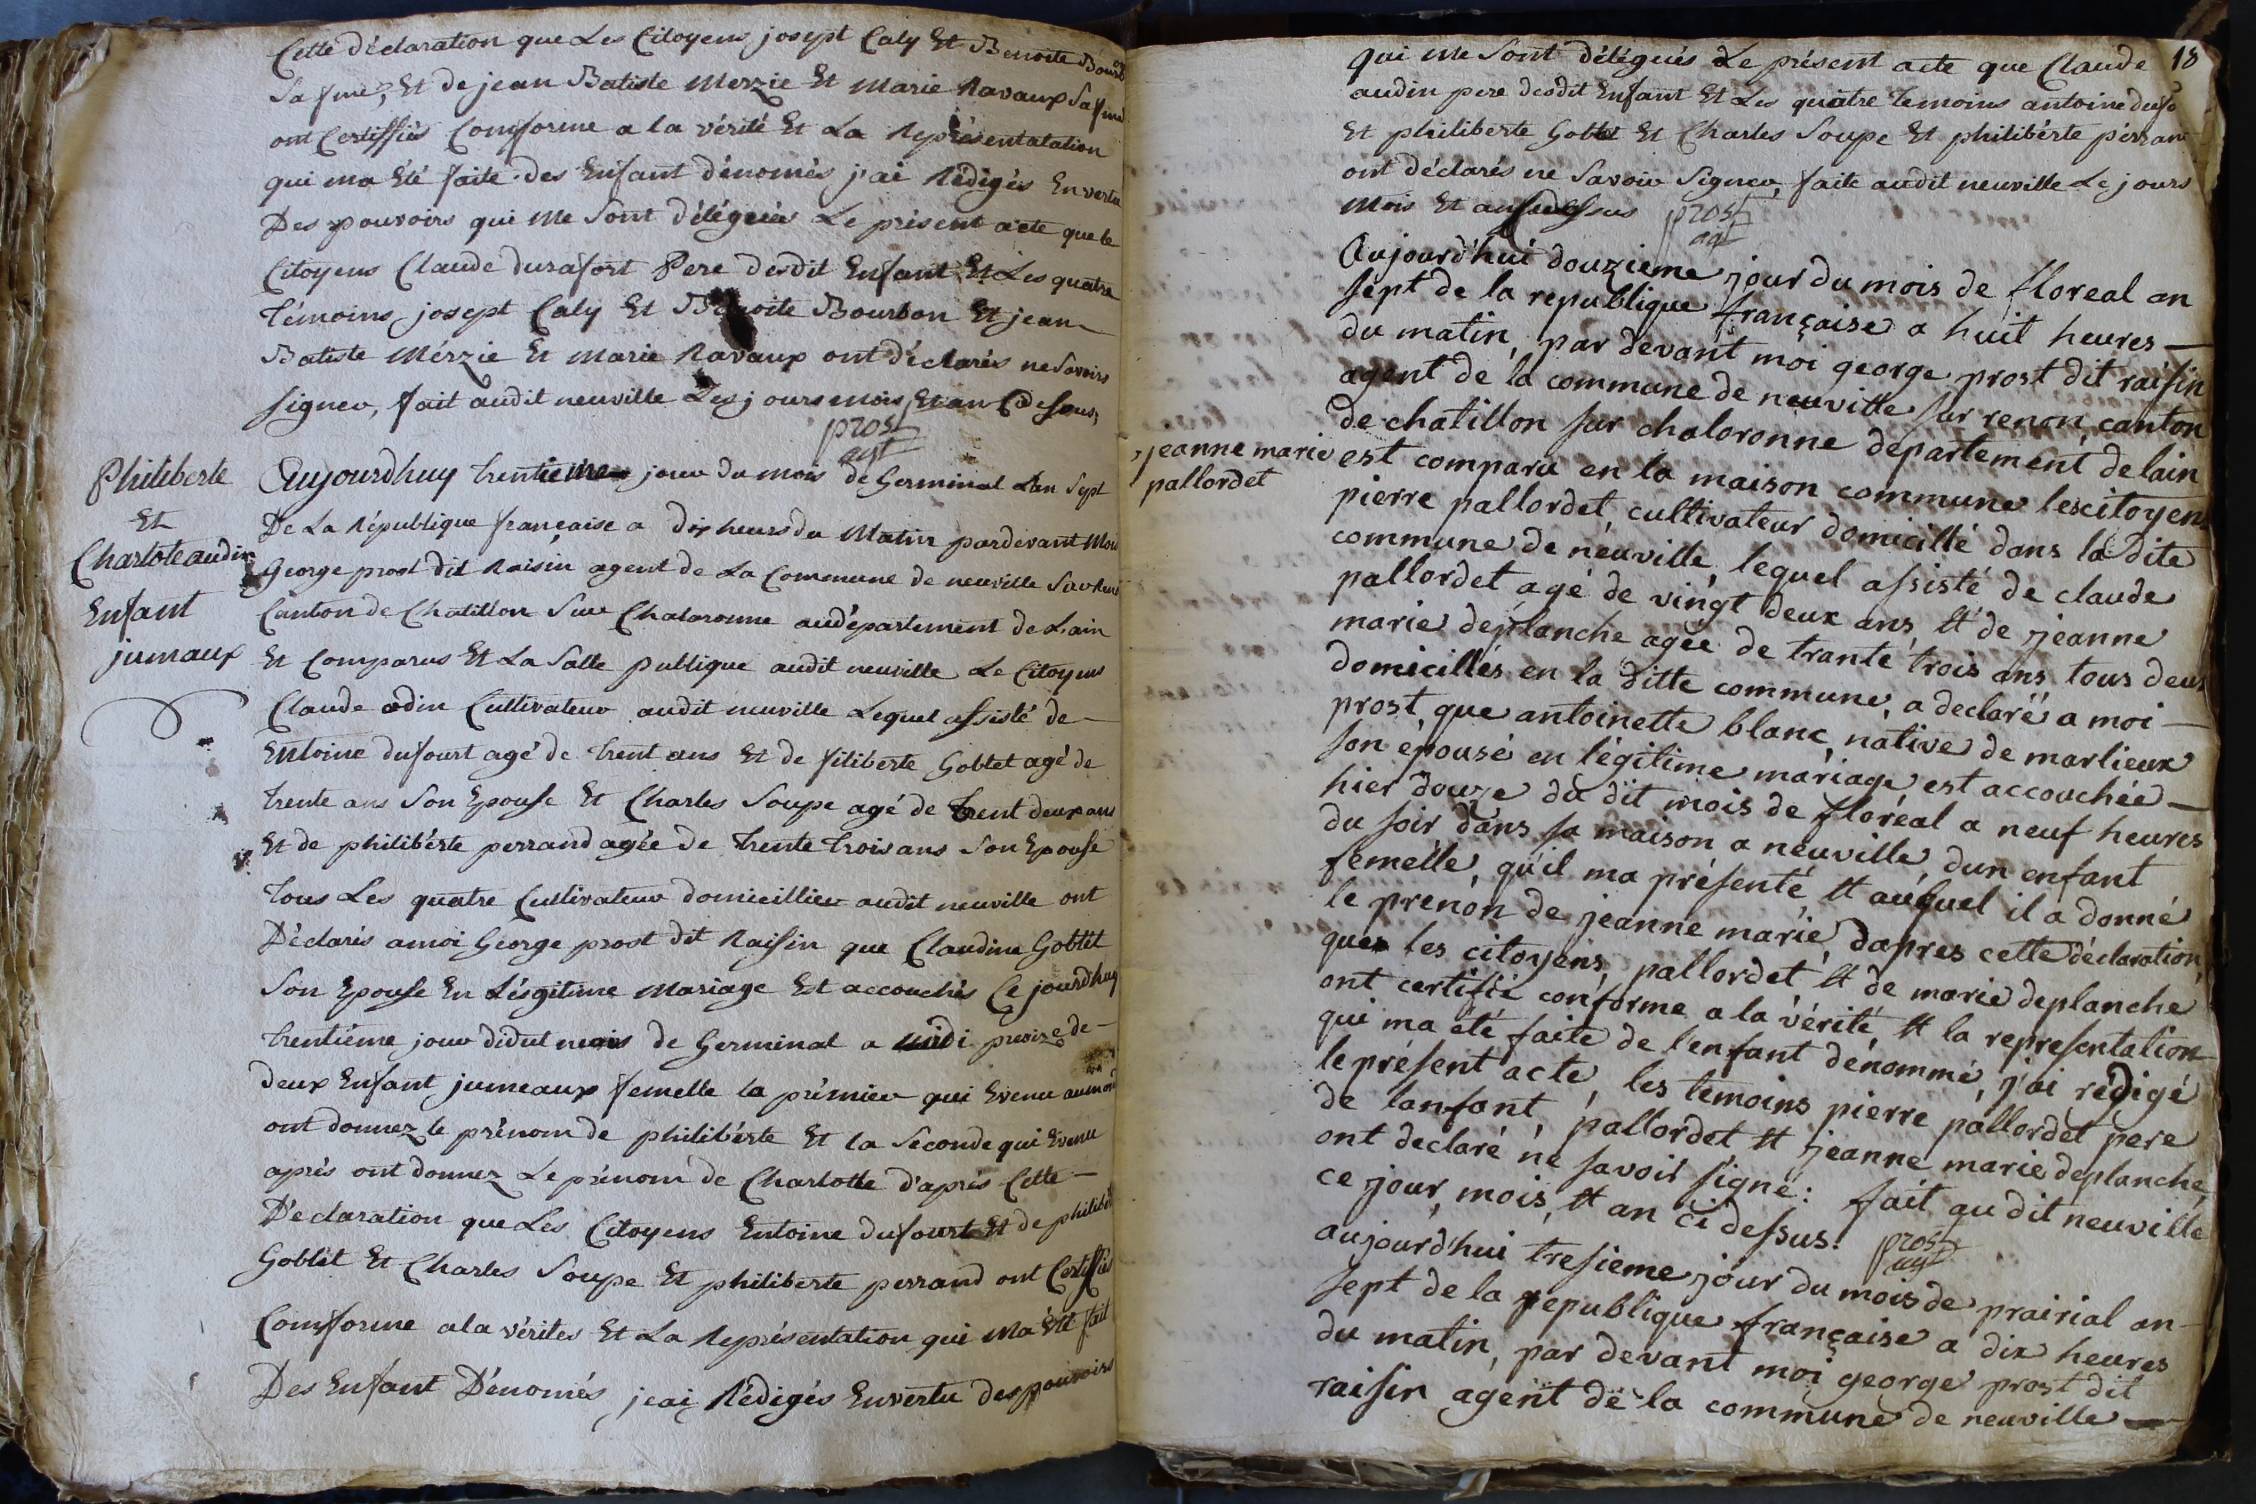 Cette déclaration que Les Citoyens josept Caly Et Benoite Bourbon
Sa fme, Et de jean Batiste Merzie Et Marie Ravaux Sa fme
ont Certiffiés Comforme a la vérité Et La Représentatation
qui ma Eté faite des Enfant dénomés j'ai Rédigés En vertu
Des pouvoirs qui me sont délégués Le présent acte que le
Citoyens Claude durafort Pere dudit Enfant Et Les quatre
témoins josept Caly Et Benoite Bourbon Et jean
Batiste Mérzie Et marie Ravaux ont déclarés ne Savoirs
signer, fait audit neuville Les jours mois Et an
prost
agt
Philiberte
Et
Charlote audin
Enfant
jumaux
Aujourdhuy trentieme jour du mois de Germinal Lan Sept
De La République française a dix heurs du Matin pardevant Moi
George prost dit Raisin agent de La Commune de neuville
Canton de Chatillon Sur Chalaronne audépartement de Lain
Et Comparus Et La Salle publique audit neuville Le Citoyens
Claude odin Cultivateur audit neuville Lequel assisté de
Entoine dufourt agé de trent ans Et de filiberte Goblet agé de
trente ans Son Epouse Et Charles Soupe agé de trent deux ans
Et de philibérte perrand agée de trente trois ans Son Epouse
tous Les quatre Cultivateur domicillier audit neuville ont
Déclarés amoi George prost dit Raisin que Claudine Goblet
Son Epouse En Lésgitime Mariage Est accouchés Ce jourdhuy
trentiéme jour didut mois de Germinal a midi de
deux Enfant jumeaux femelle la prémier qui Evenu
ont donnez le prénom de philibérte Et la Seconde qui Evenu
aprés ont donnez Le prénom de Charlotte d'aprés Cette
Déclaration que Les Citoyens Entoine dufourt Et de
Goblet Et Charles Soupe Et philiberte perrand ont Certiffiés
Comforme ala vérites Et La Représentation qui Ma Eté fait
Des Enfant Dénomés jeai Rédigés Envertu des pouvoirs
18
qui me Sont délégués Le présent acte que Claude
audin pere desdit Enfant Et Les quatre temoins antoine
Et philiberte Goblet Et Charles Soupe Et philibérte perrand
ont déclarés ne Savoir Signer, faite audit neuville Le jours
Mois Et
prost
agt
Aujourd'hui douzieme jour du mois de floreal an
sept de la republique française a huit heures
du matin, par devant moi george prost dit raisin
agent de la commune de neuville sur renon canton
de chatillon sur chaloronne département delain
jeanne marie
pallordet
est comparu en la maison commune lescitoyens
pierre pallordet cultivateur domicillé dans la dite
commune de neuville lequel assisté de claude
pallordet agé de vingt deux ans, et de jeanne
marie déplanche agée de trante trois ans tous deux
domicillés en la ditte commune, a declaré a moi
prost que antoinette blanc, native de marlieux
son épousé en légitime mariage est accouchée
hier douze du dit mois de floréal a neuf heures
du soir dans sa maison a neuville, dun enfant
femelle, qu'il ma présenté et auquel il a donné
le prenon de jeanne marie, dapres cette déclaration
que les citoyens pallordet et de marie deplanche
ont certifié conforme a la vérité et la representation
qui ma été faite de l'enfant dénommé, j'ai rédigé
le présent acte, les temoins pierre pallordet pere
de lanfant, pallordet et jeanne marie deplanche
ont declaré ne savoir signé: fait au dit neuville
ce jour, mois, et an ci dessus.
prost
agt
aujourd'hui tresieme jour du mois de prairial an
sept de la republique française a dix heures
du matin, par devant moi george prost dit
raisin agent de la commune de neuville